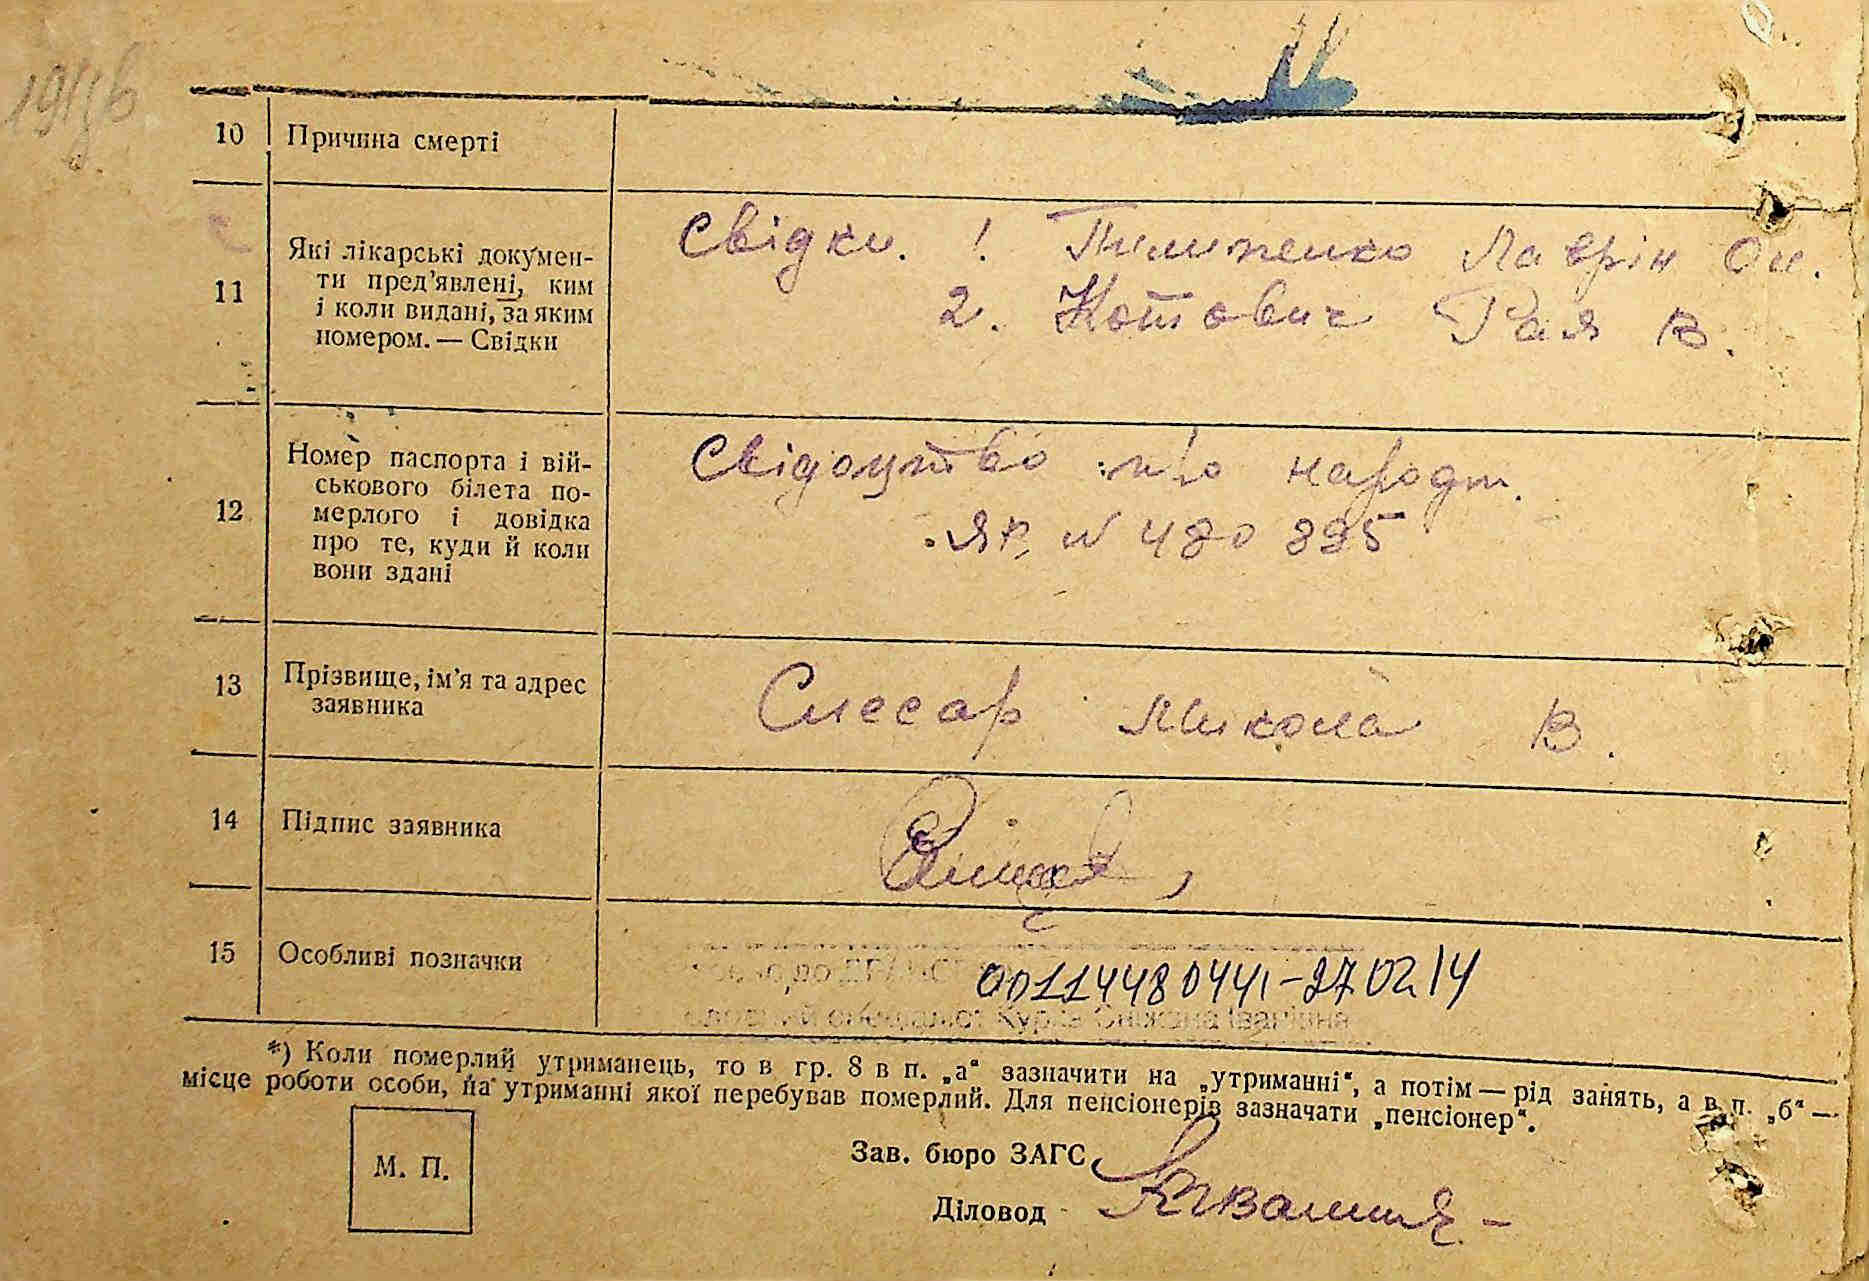 1946
10 Причина смерті
11 Які лікарські докумен-
ти пред'явлені, ким
і коли видані, за яким
номером. — Свідки
Свідки. 1 Пилипенко Лаврін Он.
2. Котович Рая В.
12 Номер паспорта і вій-
ськового білета по-
мерлого і довідка
про те, куди й коли
вони здані
Свідоцтво про народж.
ЯР, N 480 895
13 Прізвище, ім'я та адрес
заявника
Слесар Микола В.
14 Підпис заявника
15 Особливі позначки
00114480441-27.02.14
Курля Сніжана Іванівна
*) Коли померлий утриманець, то в гр. 8 в п. „а“ зазначити на „утриманні“, а потім — рід занять, а в п. „б“ —
місце роботи особи, на утриманні якої перебував померлий. Для пенсіонерів зазначати „пенсіонер“.
М. П.
Зав. бюро ЗАГС
Діловод